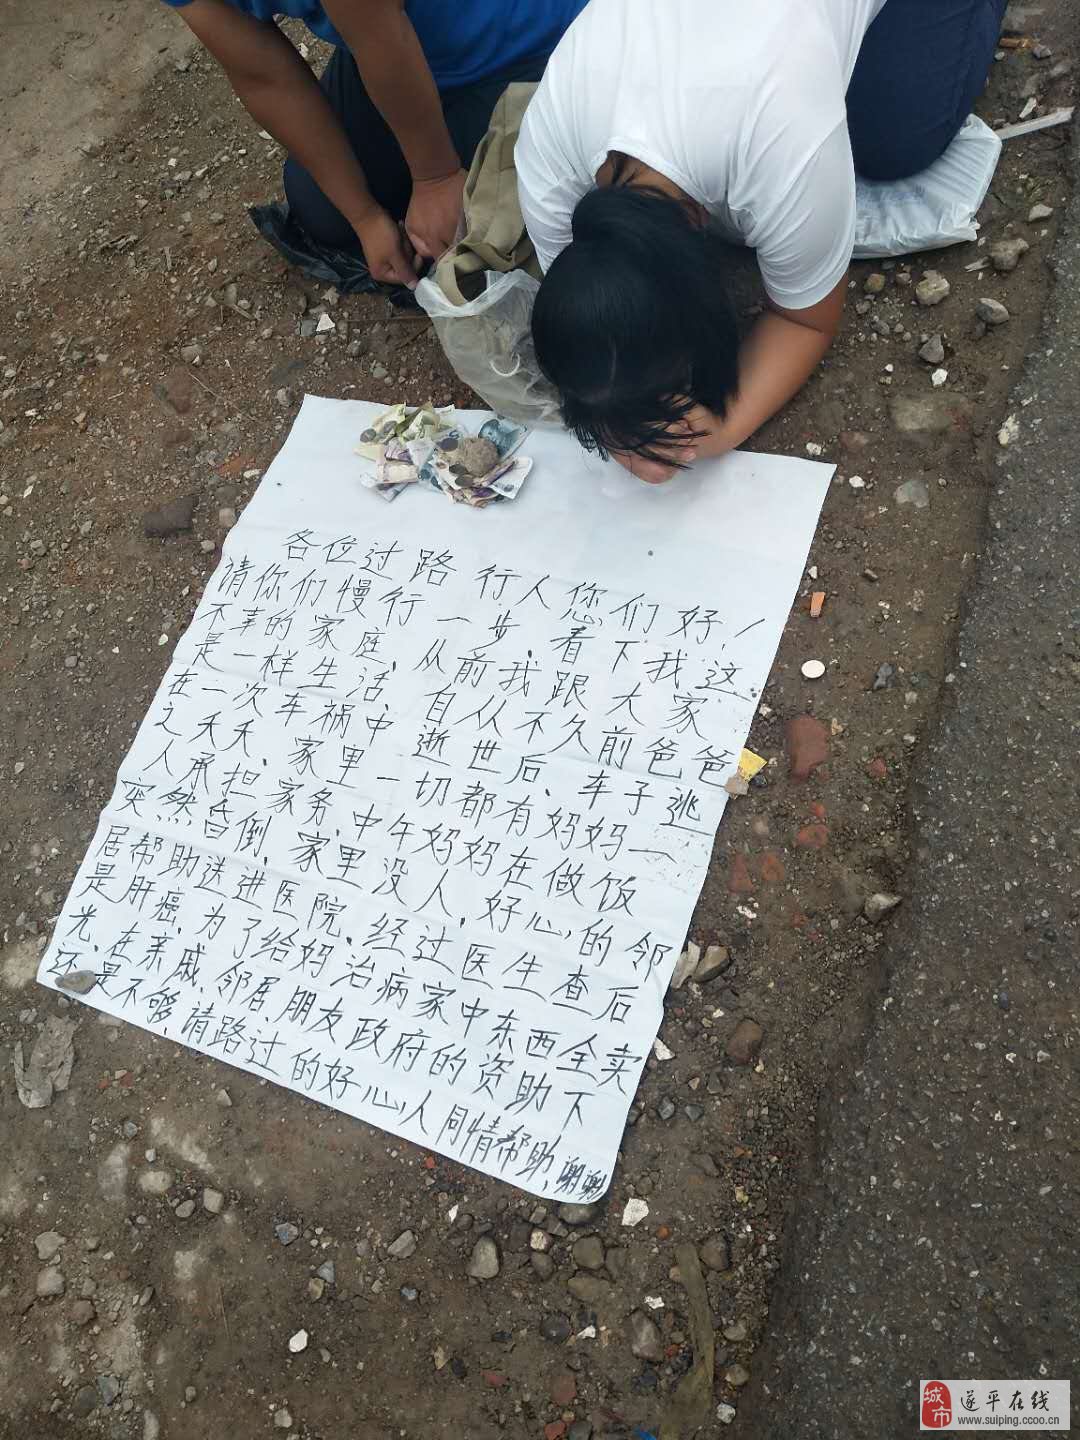 各位过路行人您们好!
请你们慢行一步,看下我这
不幸的家庭,从前我跟大家
是一样生活,自从不久前爸爸
在一次车祸中逝世后、车子逃
之夭夭、家里一切都有妈妈一
人承担家务,中午妈妈在做饭
突然昏倒,家里没人,好心的邻
居帮助送进医院、经过医生查后
是肝癌,为了给妈治病家中东西全卖
光、在亲戚、邻居、朋友政府的资助下
还是不够,请路过的好心人同情帮助,谢谢
城市
遂平在线
www.suiping.ccoo.cn